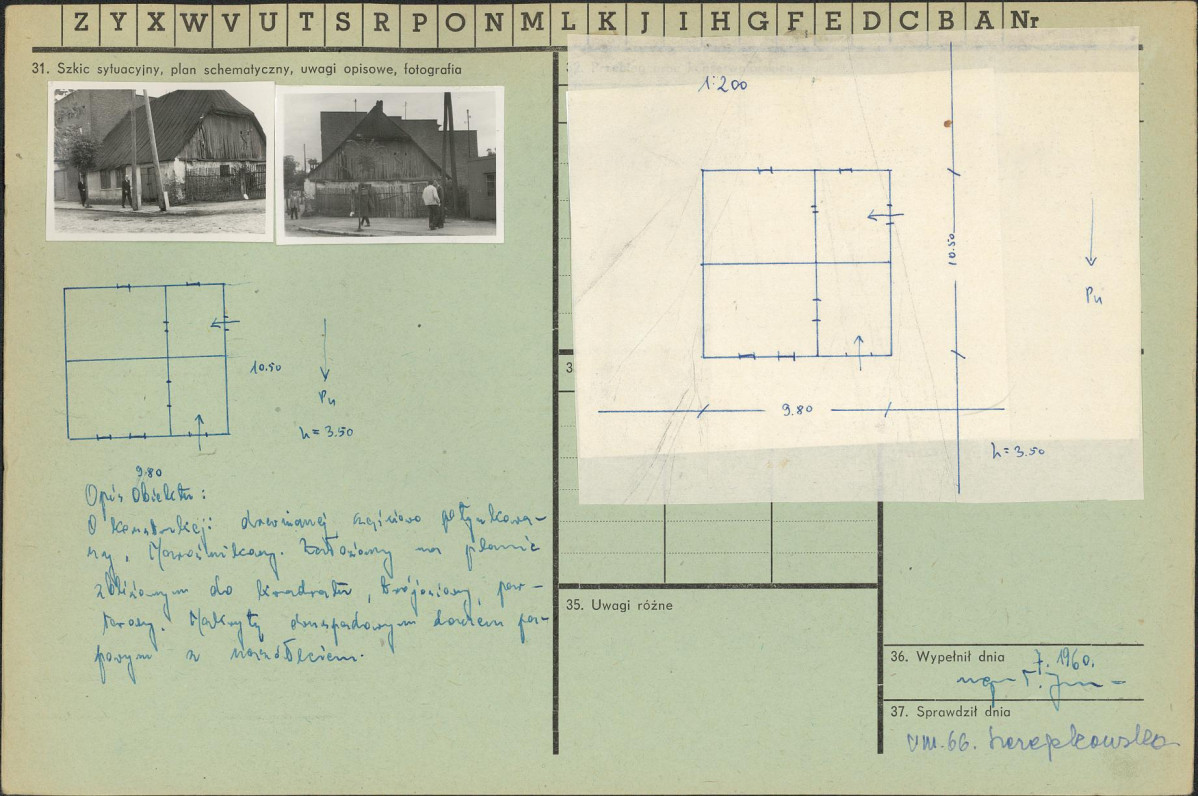 Z Y X W V U T S R P O N M L K J I H G F E D C B A Nr
31. Szkic sytuacyjny, plan schematyczny, uwagi opisowe, fotografia
10.50
Pn
h = 3.50
9.80
Opis Obiektu:
O konstrukcji drewnianej, częściowo potynkowa-
ny, . Założony na planie
zbliżonym do kwadratu, trójosiowy, par-
terowy. Nakryty dwuspadowym dachem pa-
powym z naczółkiem.
1:200
10.50
Pn
9.80
h = 3.50
3
35. Uwagi różne
36. Wypełnił dnia 7. 1960.
mgr
37. Sprawdził dnia
VIII. 66. Szczepkowska